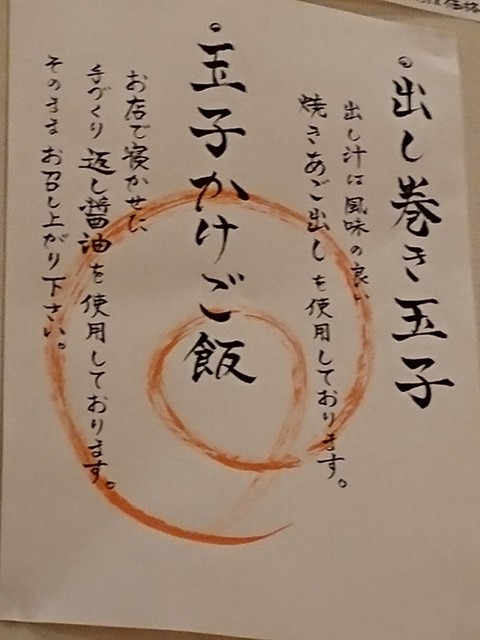 。出し巻き玉子
出し汁は風味の良い
焼きあご出しを使用しております。
。玉子かけご飯
お店で寝かせた
手づくり返し醤油を使用しております。
そのままお召し上がり下さい。
価格